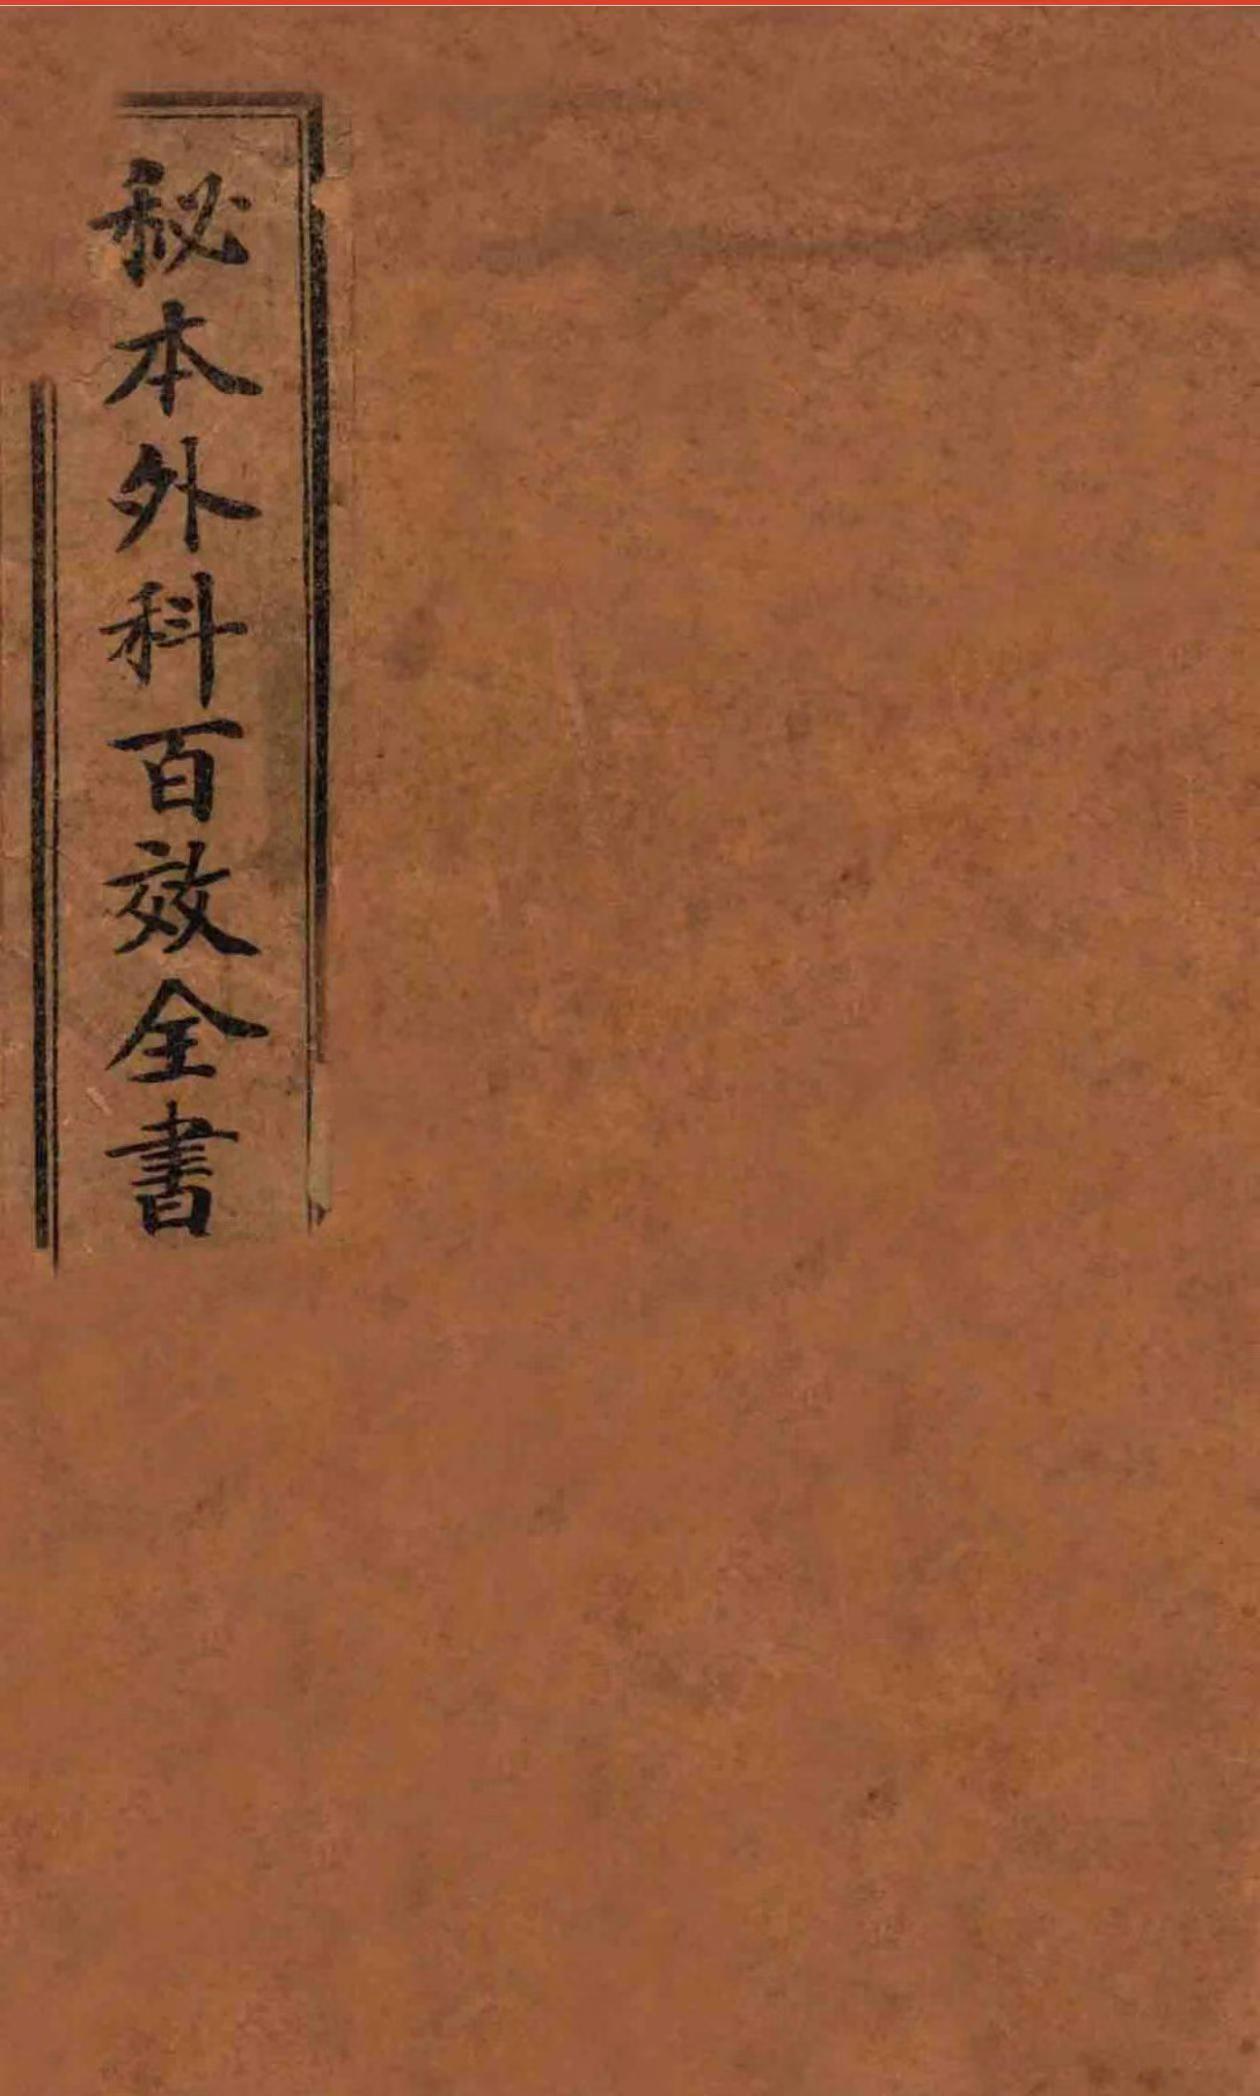 秘本外科百效全書